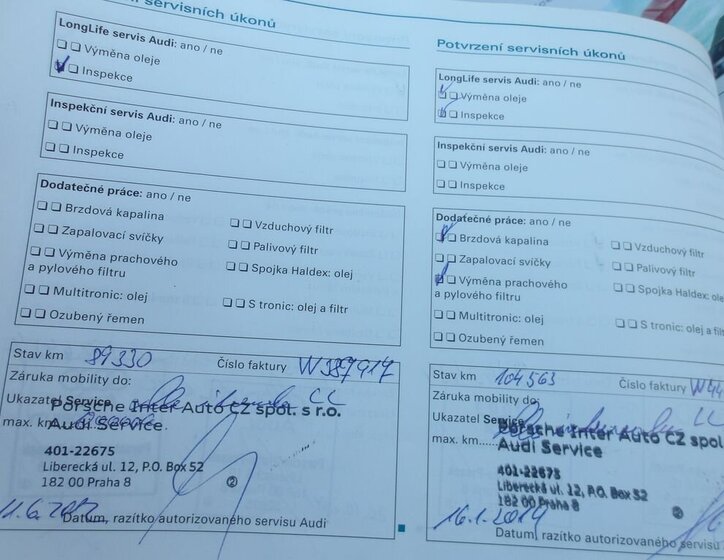 servisních úkonů
LongLife servis Audi: ano / ne
Výměna oleje
Inspekce
Inspekční servis Audi: ano / ne
Výměna oleje
Inspekce
Dodatečné práce: ano / ne
Brzdová kapalina
Zapalovací svíčky
Výměna prachového
a pylového filtru
Multitronic: olej
Ozubený řemen
Vzduchový filtr
Palivový filtr
Spojka Haldex: olej
S tronic: olej a filtr
Stav km 89330 Číslo faktury W387917
Záruka mobility do:
Ukazatel Service
max. km
Porsche Inter Auto CZ spol. s r.o.
Audi Service
401-22675
Liberecká ul. 12, P.O. Box 52
182 00 Praha 8
②
Datum, razítko autorizovaného servisu Audi
Potvrzení servisních úkonů
LongLife servis Audi: ano / ne
Výměna oleje
Inspekce
Inspekční servis Audi: ano / ne
Výměna oleje
Inspekce
Dodatečné práce: ano / ne
Brzdová kapalina
Zapalovací svíčky
Výměna prachového
a pylového filtru
Multitronic: olej
Ozubený řemen
Vzduchový filtr
Palivový filtr
Spojka Haldex: olej
S tronic: olej a filtr
Stav km 104563 Číslo faktury W44
Záruka mobility do:
Ukazatel Service
max. km
Porsche Inter Auto CZ spol
Audi Service
401-22675
Liberecká ul. 12, P.O. Box 52
182 00 Praha 8
②
16.1.2014
Datum, razítko autorizovaného servisu